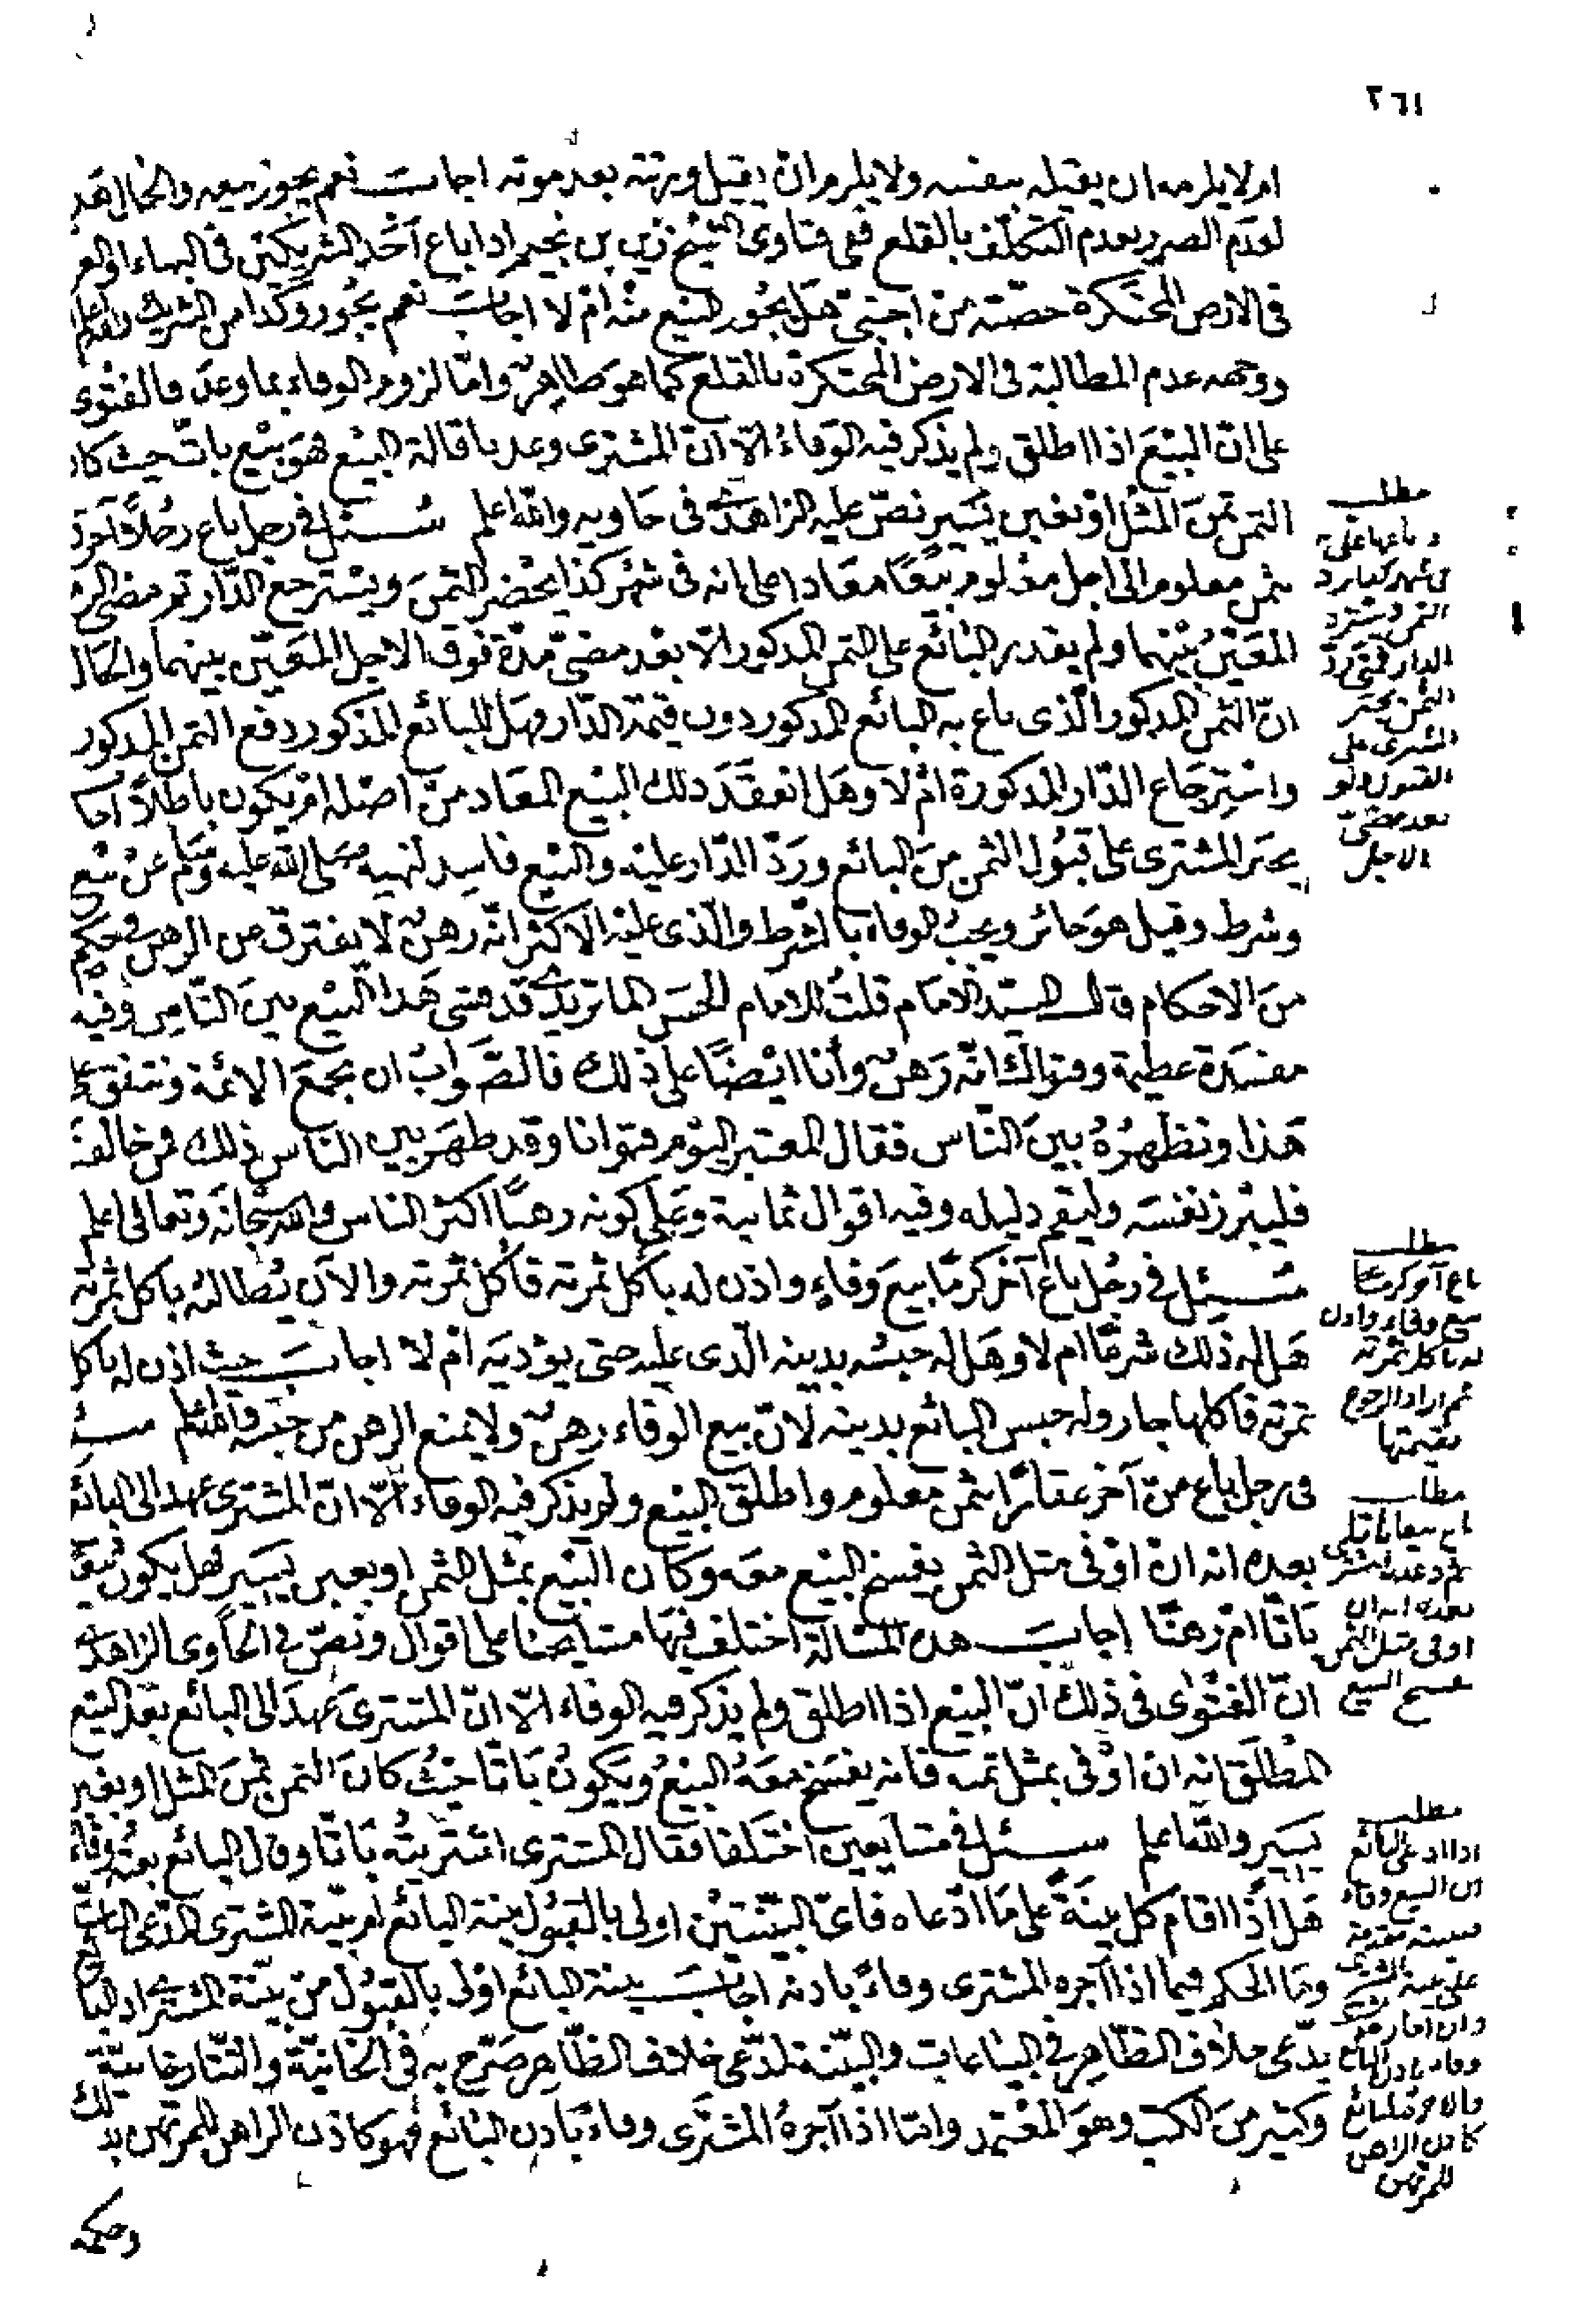 ٢٦١
ام لا يلزمه ان يقيله بنفسه ولا يلزم ان يقيل ورثته بعد موته اجاب نعم يجوز بيعه والحال هذه
لعدم الضرر بعدم التكلف بالقلع ففى فتاوى الشيخ زين بن نجيم اذا باع احد الشريكين فى البناء او الغرس
فى الارض المحتكرة حصته من اجنبى هل يجوز البيع منه ام لا اجاب نعم يجوز وكذا من الشريك والله اعلم
ووجهه عدم المطالبة فى الارض المحتكرة بالقلع كما هو ظاهر واما لزوم الوفاء بما وعد فالفتوى
على ان البيع اذا اطلق ولم يذكر فيه الوفاء الا ان المشترى وعد باقالة البيع فهو بيع بات حيث كان
الثمن ثمن المثل او بغبن يسير نصّ عليه الزاهدى فى حاويه والله اعلم سئل فى رجل باع رجلا آخر دارا
بثمن معلوم الى اجل معلوم بيعًا معادا على انه فى شهر كذا يحضر الثمن ويسترجع الدار ثم مضى الزمن
المعين بينهما ولم يقدر البائع على الثمن المذكور الا بعد مضى مدة فوق الاجل المعين بينهما والحال
انّ الثمن المذكور الذى باع به البائع المذكور دون قيمة الدار فهل للبائع المذكور دفع الثمن المذكور
واسترجاع الدار المذكورة ام لا وهل انعقد ذلك البيع المعاد من اصله ام يكون باطلا اجاب
يجبر المشترى على قبول الثمن من البائع ورد الدار عليه والبيع فاسد لنهيه صلى الله عليه وسلم عن بيع
وشرط وقيل هو جائز ويجب الوفاء بالشرط والذى عليه الاكثر انه رهن لا يفترق عن الرهن فى حكم
من الاحكام قال السيد الامام قلت للامام الحسن الماتريدى قد فشى هذا البيع بين الناس وفيه
مفسدة عظيمة وفتواك انّه رهن وأنا ايضًا على ذلك فالصواب ان نجمع الائمة ونتفق على
هذا ونظهره بين الناس فقال المعتبر اليوم فتوانا وقد ظهر بين الناس ذلك فمن خالفنا
فليبرز نفسه وليقم دليله وفيه اقوال ثمانية وعلى كونه رهنًا اكثر الناس والله سبحانه وتعالى اعلم
سئل فى رجل باع آخر كرمًا بيع وفاء واذن له باكل ثمرته فاكل ثمرته والآن يطالبه باكل ثمرته
هل له ذلك شرعًا ام لا وهل له حبسه بدينه الذى عليه حتى يؤديه ام لا اجاب حيث اذن له باكل
ثمرته فاكلها جاز وله حبس البائع بدينه لانّ بيع الوفاء رهن ولا يمنع الرهن من حبسه والله اعلم سئل
فى رجل باع من آخر عقارًا بثمن معلوم واطلق البيع ولم يذكر فيه الوفاء الّا انّ المشترى عهد الى البائع
بعده انه ان اوفى مثل الثمن يفسخ البيع معه وكان البيع بمثل الثمن او بغبن يسير فهل يكون بيعًا
باتا ام رهنًا اجاب هذه المسألة اختلف فيها مشايخنا على اقوال ونصّ فى الحاوى الزاهدى
انّ الفتوى فى ذلك انّ البيع اذا اطلق ولم يذكر فيه الوفاء الّا انّ المشترى عهد الى البائع بعد البيع
المطلق انه ان اوفى بمثل ثمنه فانه يفسخ معه البيع ويكون باتا حيث كان الثمن ثمن المثل او بغبن
يسير والله اعلم سئل فى متبايعين اختلفا فقال المشترى اشتريته باتا وقال البائع بعته وفاءً
هل اذا اقام كل بينة على ما ادعاه فاى البينتين اولى بالقبول بينة البائع ام بينة المشترى المدعى البات
وما الحكم فيما اذا آجره المشترى وفاءً باذنه اجاب بينة البائع اولى بالقبول من بينة المشترى اذ البائع
يدعى خلاف الظاهر فى البياعات والبينة لمدعى خلاف الظاهر صرّح به فى الخانية والتتارخانية
وكثير من الكتب وهو المعتمد وامّا اذا آجره المشترى وفاءً باذن البائع فهو كاذن الراهن للمرتهن بذلك
وحكمه
مطلب
دارباعها على
شهر كذا يرد
الثمن ويسترد
الدار فمتى رد
الثمن يجبر
المشترى على
القبول ولو
بعد مضى
الاجل
مطلب
باع آخر كرما
بيع وفاء واذن
له باكل ثمرته
ثم اراد الرجوع
بقيمتها
مطلب
باع بيعا باتا
ثم وعد المشترى
بعده انه ان
اوفى مثل الثمن
يفسخ البيع
مطلب
اذا ادعى البائع
ان البيع وفاء
فبينته مقدمة
على بينة المشترى
وان اجاره
وفاء باذن البائع
فالاجرة للبائع
كاذن الراهن
للمرتهن